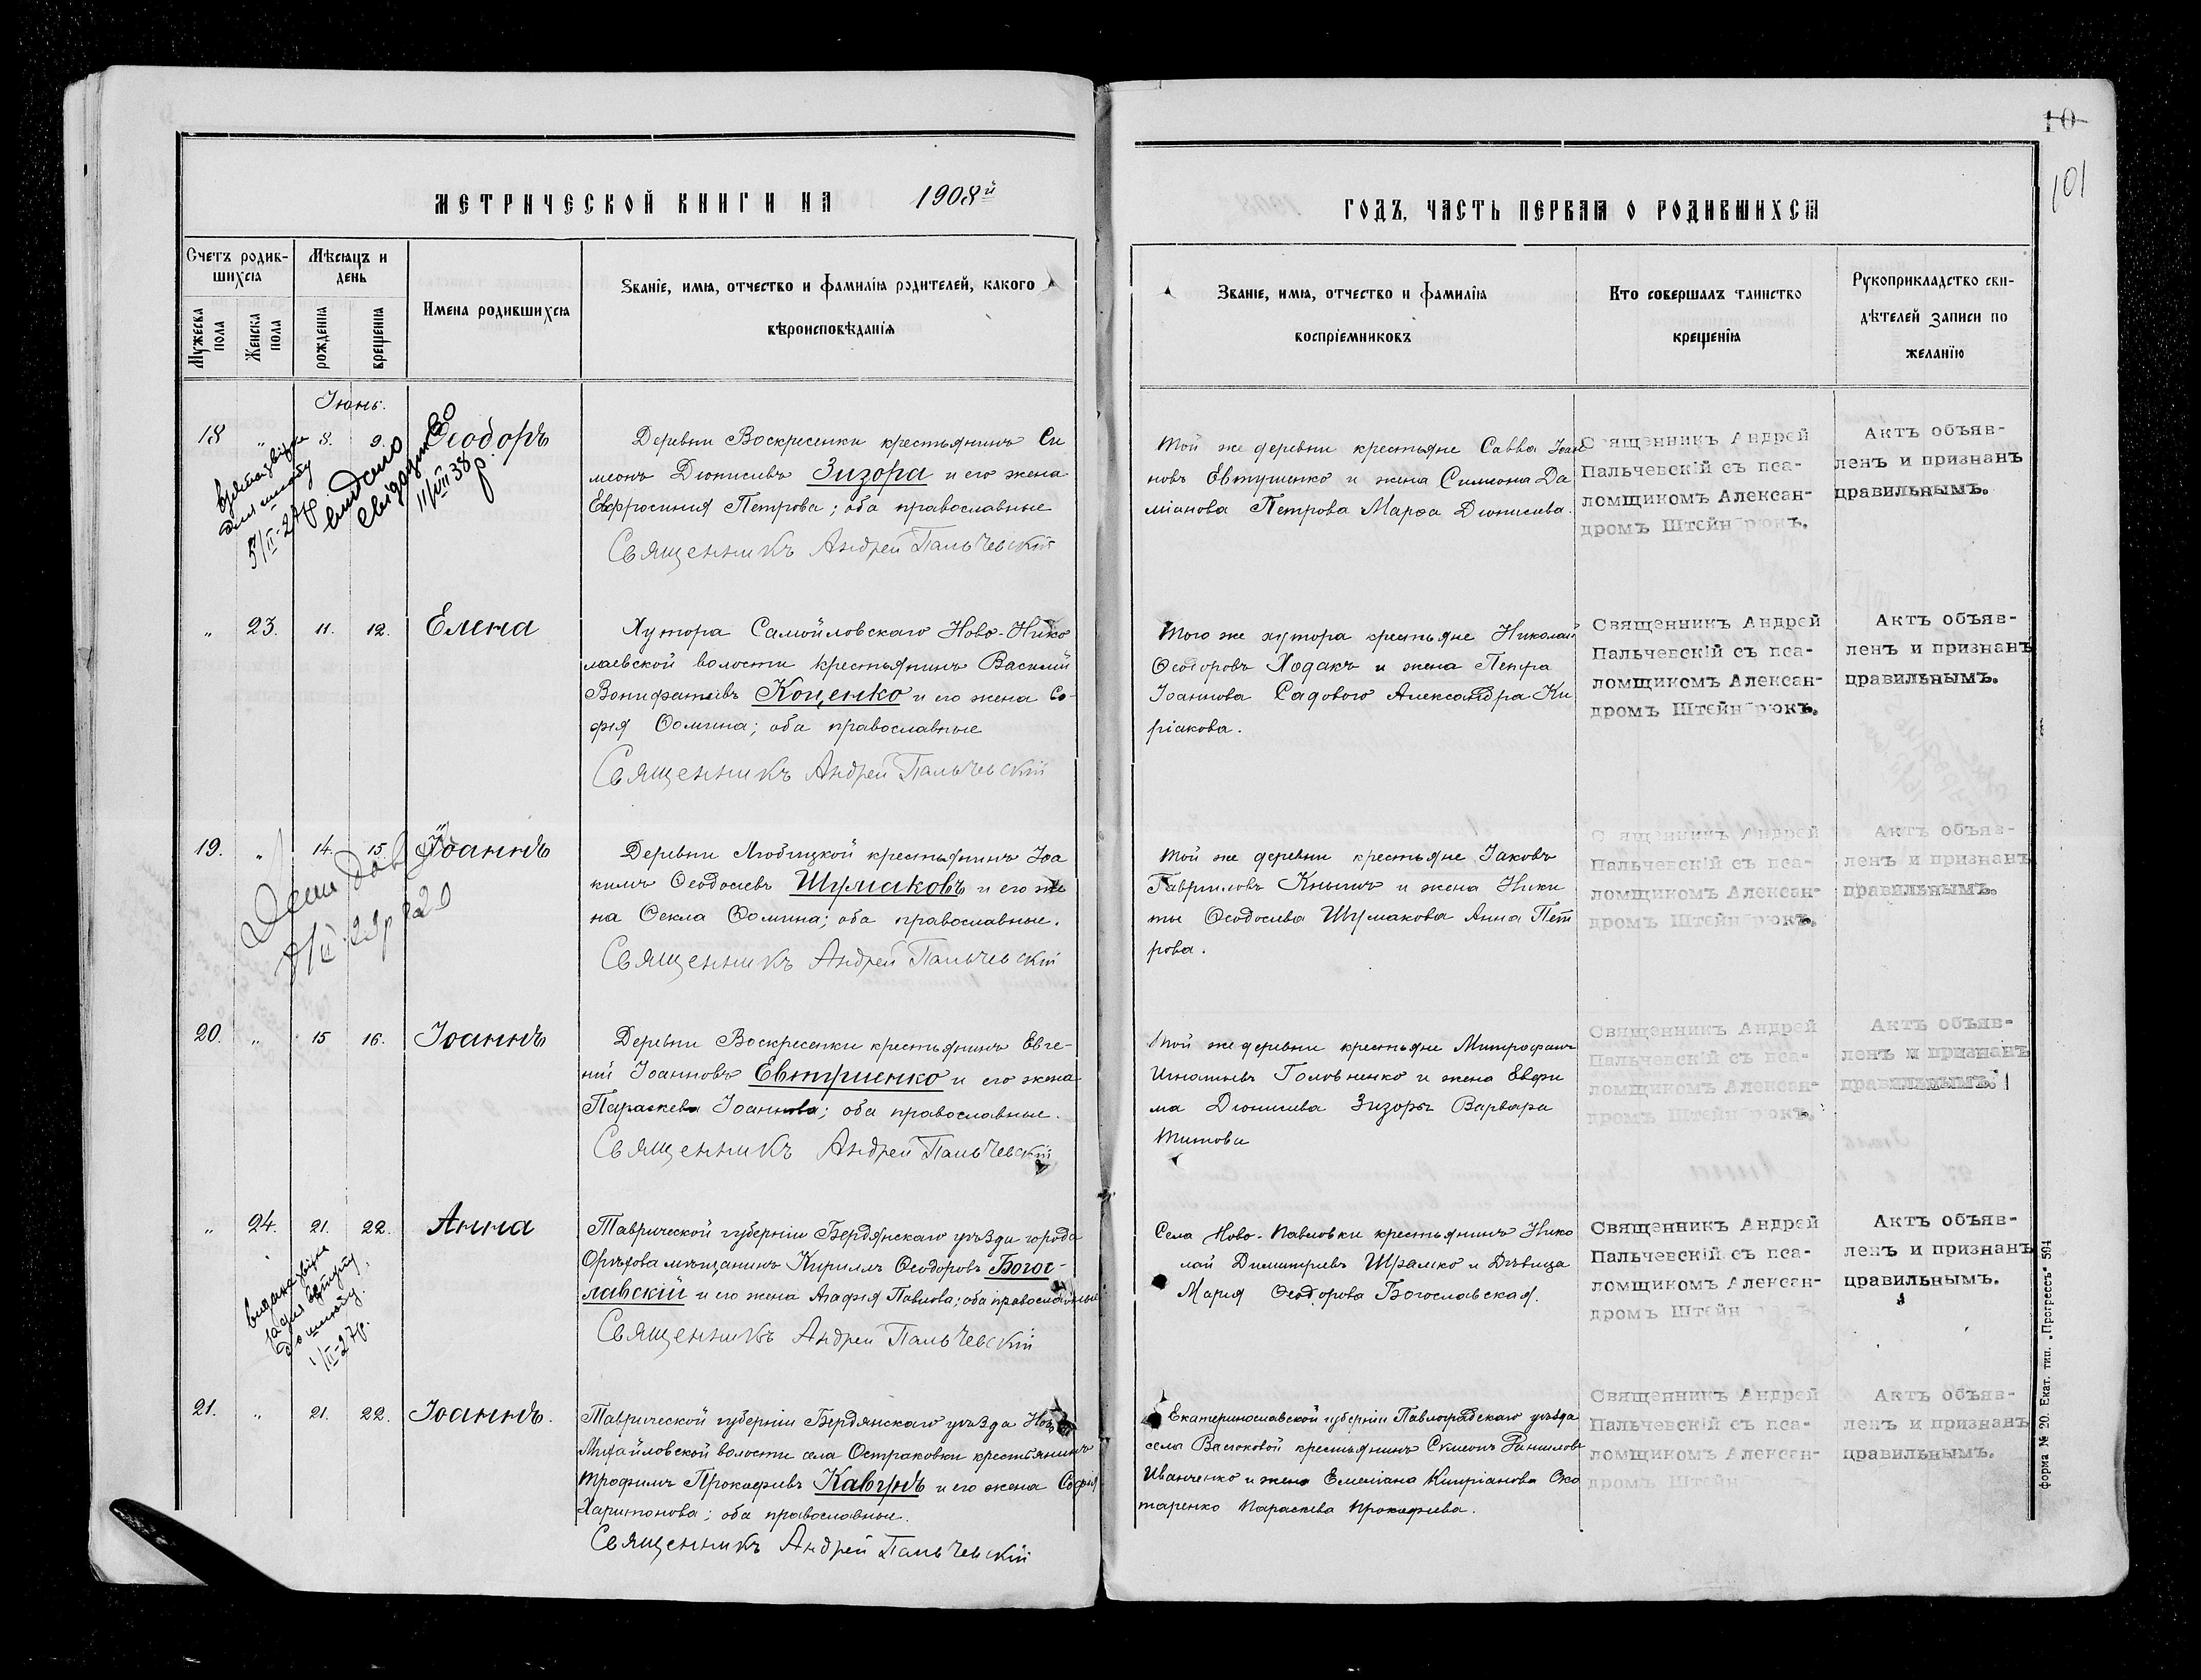 МЕТРИЧЕСКОЙ КНИГИ НА 1908й
ГОДЪ, ЧАСТЬ ПЕРВАЯ О РОДИВШИХСЯ
10
101
Счетъ родив-
шихся
Мужеска
пола
Женска
пола
Мѣсяцъ и
день
рожденія
крещенія
Имена родившихся
Званіе, имя, отчество и фамилія родителей, какого
вѣроисповѣданія
Званіе, имя, отчество и фамилія
воспріемниковъ
Кто совершалъ таинство
крещенія
Рукоприкладство сви-
дѣтелей записи по
желанію
Іюнь.
18 " 8. 9. Ѳеодоръ
Деревни Воскресенки крестьянинъ Си
меонъ Діонисіевъ Зизора и его жена
Евфросинія Петрова; оба православные
Священникъ Андрей Пальчевскій
Той же деревни крестьяне Савва Іоан
новъ Евтушенко и жена Симеона Да
міанова Петрова Марѳа Діонисіева.
Священникъ Андрей
Пальчевскій съ пса-
ломщикомъ Алексан-
дромъ Штейнбрюкъ.
Актъ объяв-
ленъ и признанъ
правильнымъ.
5/II-27р.
видано
11/VII 38 р.
" 23. 11. 12. Елена
Хутора Самойловскаго Ново-Нико
лаевской волости крестьянинъ Василій
Вонифатіевъ Коценко и его жена Со-
фія Ѳомина; оба православные
Священникъ Андрей Пальчевскій
Того же хутора крестьяне Николай
Ѳеодоровъ Ходакъ и жена Петра
Іоаннова Садового Александра Ки
ріакова.
Священникъ Андрей
Пальчевскій съ пса-
ломщикомъ Алексан-
дромъ Штейнбрюкъ.
Актъ объяв-
ленъ и признанъ
правильнымъ.
19. " 14. 15. Іоаннъ
Деревни Любицкой крестьянинъ Іоа
кимъ Ѳеодосіевъ Шумаковъ и его же
на Ѳекла Ѳомина; оба православные.
Священникъ Андрей Пальчевскій
Той же деревни крестьяне Іаковъ
Гавриловъ Кнышъ и жена Ники
ты Ѳеодосіева Шумакова Анна Пет
рова.
Священникъ Андрей
Пальчевскій съ пса-
ломщикомъ Алексан-
дромъ Штейнбрюкъ.
Актъ объяв-
ленъ и признанъ
правильнымъ.
20. " 15 16. Іоаннъ
Деревни Воскресенки крестьянинъ Евге-
ній Іоанновъ Евтушенко и его жена
Параскева Іоаннова; оба православные.
Священникъ Андрей Пальчевскій
Той же деревни крестьяне Митрофанъ
Игнатьевъ Головненко и жена Евфи
ма Діонисіева Зизоры Варвара
Титова
Священникъ Андрей
Пальчевскій съ пса-
ломщикомъ Алексан-
дромъ Штейнбрюкъ.
Актъ объяв-
ленъ и признанъ
правильнымъ.
" 24. 21. 22. Анна
Таврической губерніи Бердянскаго уѣзда города
Орѣхова мѣщанинъ Кириллъ Ѳеодоровъ Богос-
лавскій и его жена Агафія Павлова; оба православные
Священникъ Андрей Пальчевскій
Села Ново-Павловки крестьянинъ Нико
лай Димитріевъ Шрамко и Дѣвица
Марія Ѳеодорова Богославская.
Священникъ Андрей
Пальчевскій съ пса-
ломщикомъ Алексан-
дромъ Штейн
Актъ объяв-
ленъ и признанъ
правильнымъ.
1/III-27р.
21. " 21. 22. Іоаннъ.
Таврической губерніи Бердянскаго уѣзда Ново
Михайловской волости села Остраковки крестьянинъ
Трофимъ Прокофіевъ Кавунъ и его жена Софія
Харитонова; оба православные.
Священникъ Андрей Пальчевскій
Екатеринославской губерніи Павлоградскаго уѣзда
села Васюковой крестьянинъ Симеонъ Даниловъ
Иванченко и жена Емеліана Кипріанова Ско
таренко Параскева Прокофіева.
Священникъ Андрей
Пальчевскій съ пса-
ломщикомъ Алексан-
дромъ Штейн
Актъ объяв-
ленъ и признанъ
правильнымъ.
Форма № 20. Екат. тип. „Прогрессъ" 594